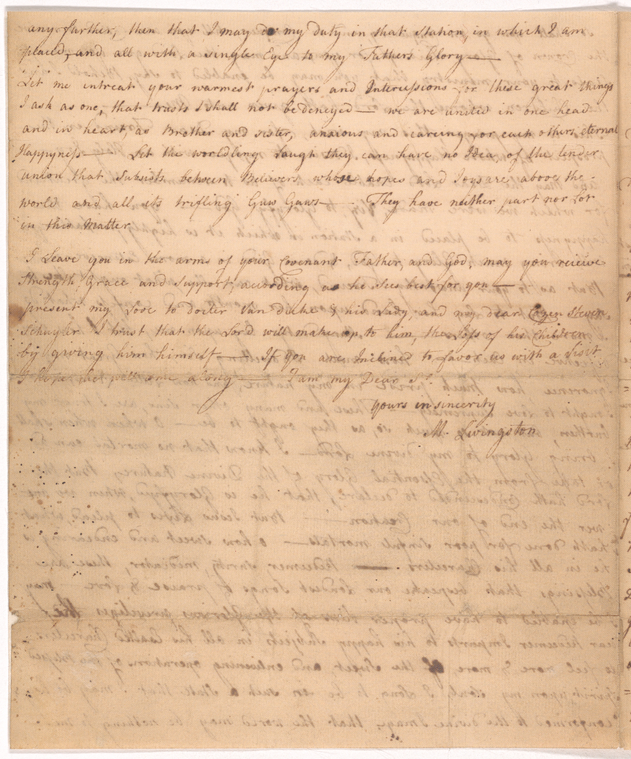 any further, then that I may do my duty in that Station, in which I am
placed, and all with a single Eye to my Fathers Glory —
Let me intreat your warmest prayers and Intercessions for these great things
I ask as one, that trusts I shall not be deneyed — we are united in one head
and in heart, as Brother and sister, anxious and careing for each others, eternal
Happyness — Let the worldling laugh they can have no Idea of the tender
union that Subsists between Beleivers whose hopes and Joys are above the
world and all its trifling Guw Gaws — They have neither part nor Lot
in this Matter
I Leave you in the arms of your Covenant Father, and God, may you receive
Strength, Grace and Support, according as he Sees best for you —
present my Love to docter Van &amp; his Lady, and my dear
Schuyler I trust that the Lord will make up to him, the Loss of his Children
by giving him himself — If you are Inclined to favor us with a Visit
I hope will come along — I am my Dear Sr
yours in sincerity
M. Livingston